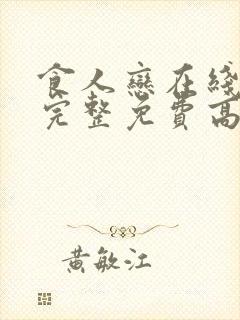 食人戀在綫
完整免費高
黃敏江